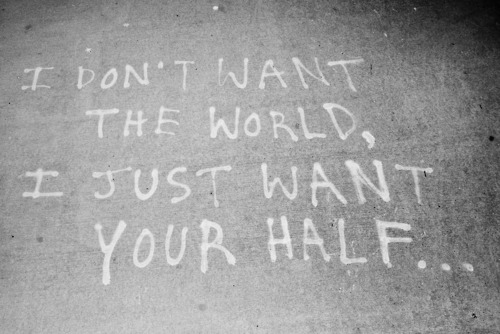 I DON'T WANT
THE WORLD,
I JUST WANT
YOUR HALF...